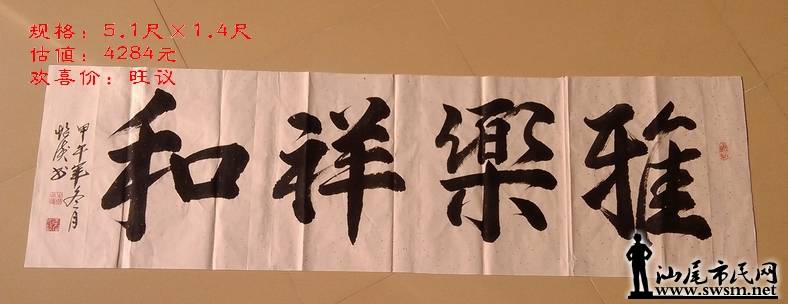 规格：5.1尺×1.4尺
估值：4284元
欢喜价：旺议
雅樂祥和
甲午年冬月
汕尾市民网
www.swsm.net